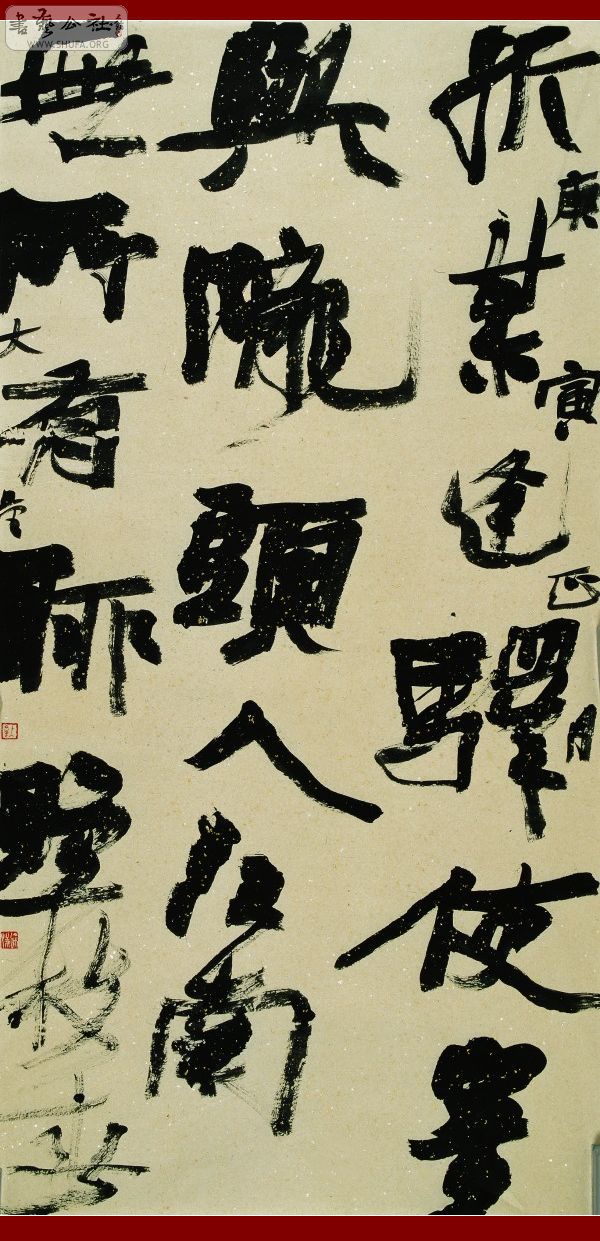 書藝公社
WWW.SHUFA.ORG
折某逢驛使寄
與隴頭人江南
無所有聊贈一枝春
庚寅正月
大